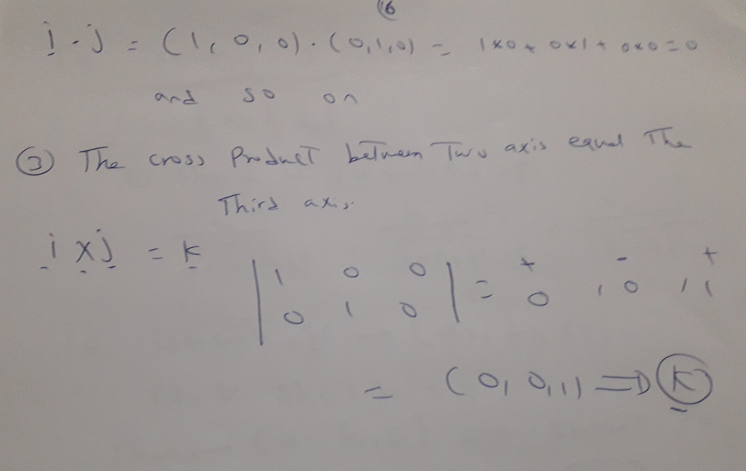 16
i . j = (1, 0, 0) . (0, 1, 0) = 1x0 + 0x1 + 0x0 = 0
and so on
③ The cross Product between Two axis equal The
Third axis.
i x j = K
| 1 0 0 | = + - +
| 0 1 0 | 0 , 0 , 1
= (0, 0, 1) => K